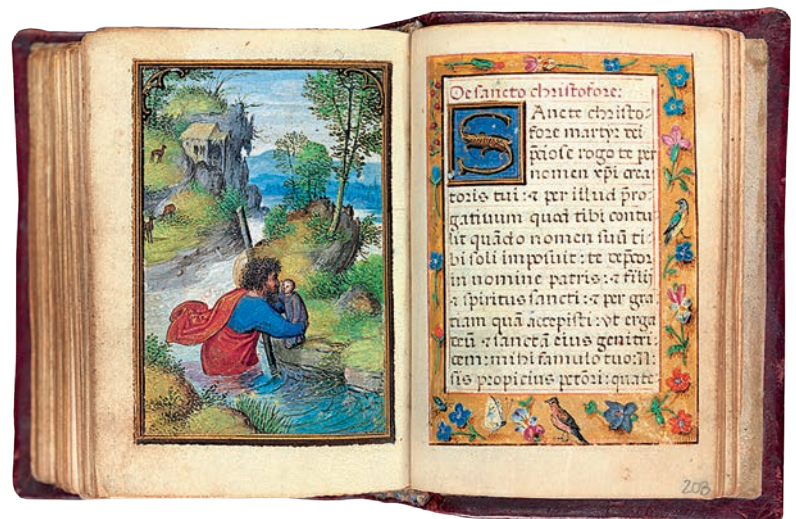 De sancto christofore:
Sancte christo-
fore martyr dei
p̄ciose rogo te per
nomen xp̄i crea
toris tui: ⁊ per illud p̄ro-
gatiuum quod tibi contu
lit quādo nomen suū ti-
bi soli imposuit: te dep̄cor
in nomine patris: ⁊ filij
⁊ spiritus sancti: ⁊ per gra
tiam quā accepisti: vt erga
deū ⁊ sanctā eius genitri-
cem: mihi famulo tuo: N:
sis propicius pctōri: quate-
208